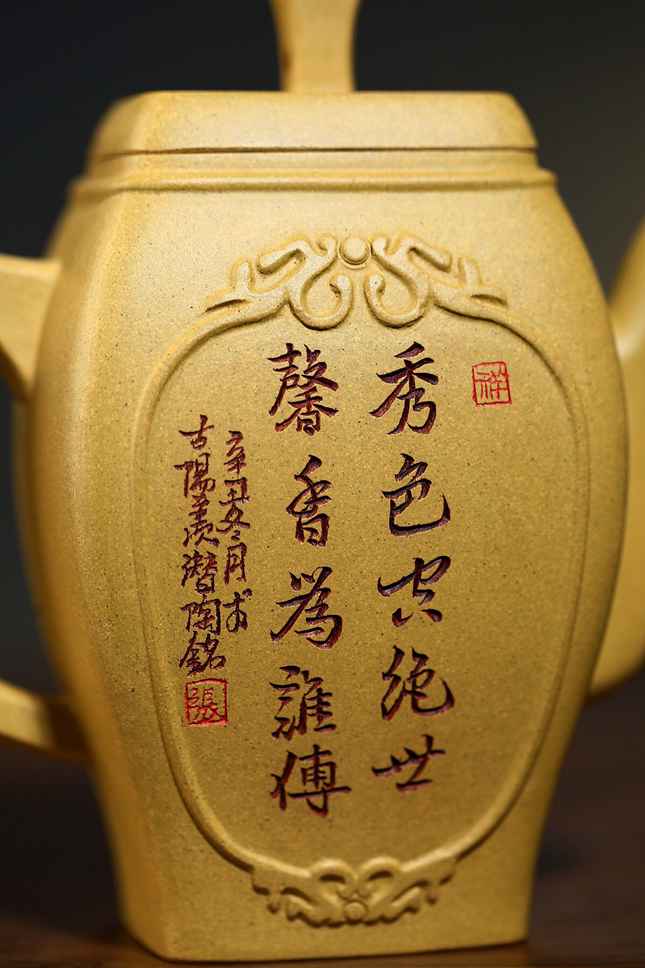 祥
秀色空绝世
馨香為誰傳
辛丑冬月於
古陽羨潛陶銘
張